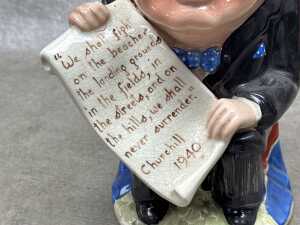 "We shall fight
on the beaches
the landing grounds
in the fields, in
the streets, and on
the hills, we shall
never surrender."
Churchill
1940